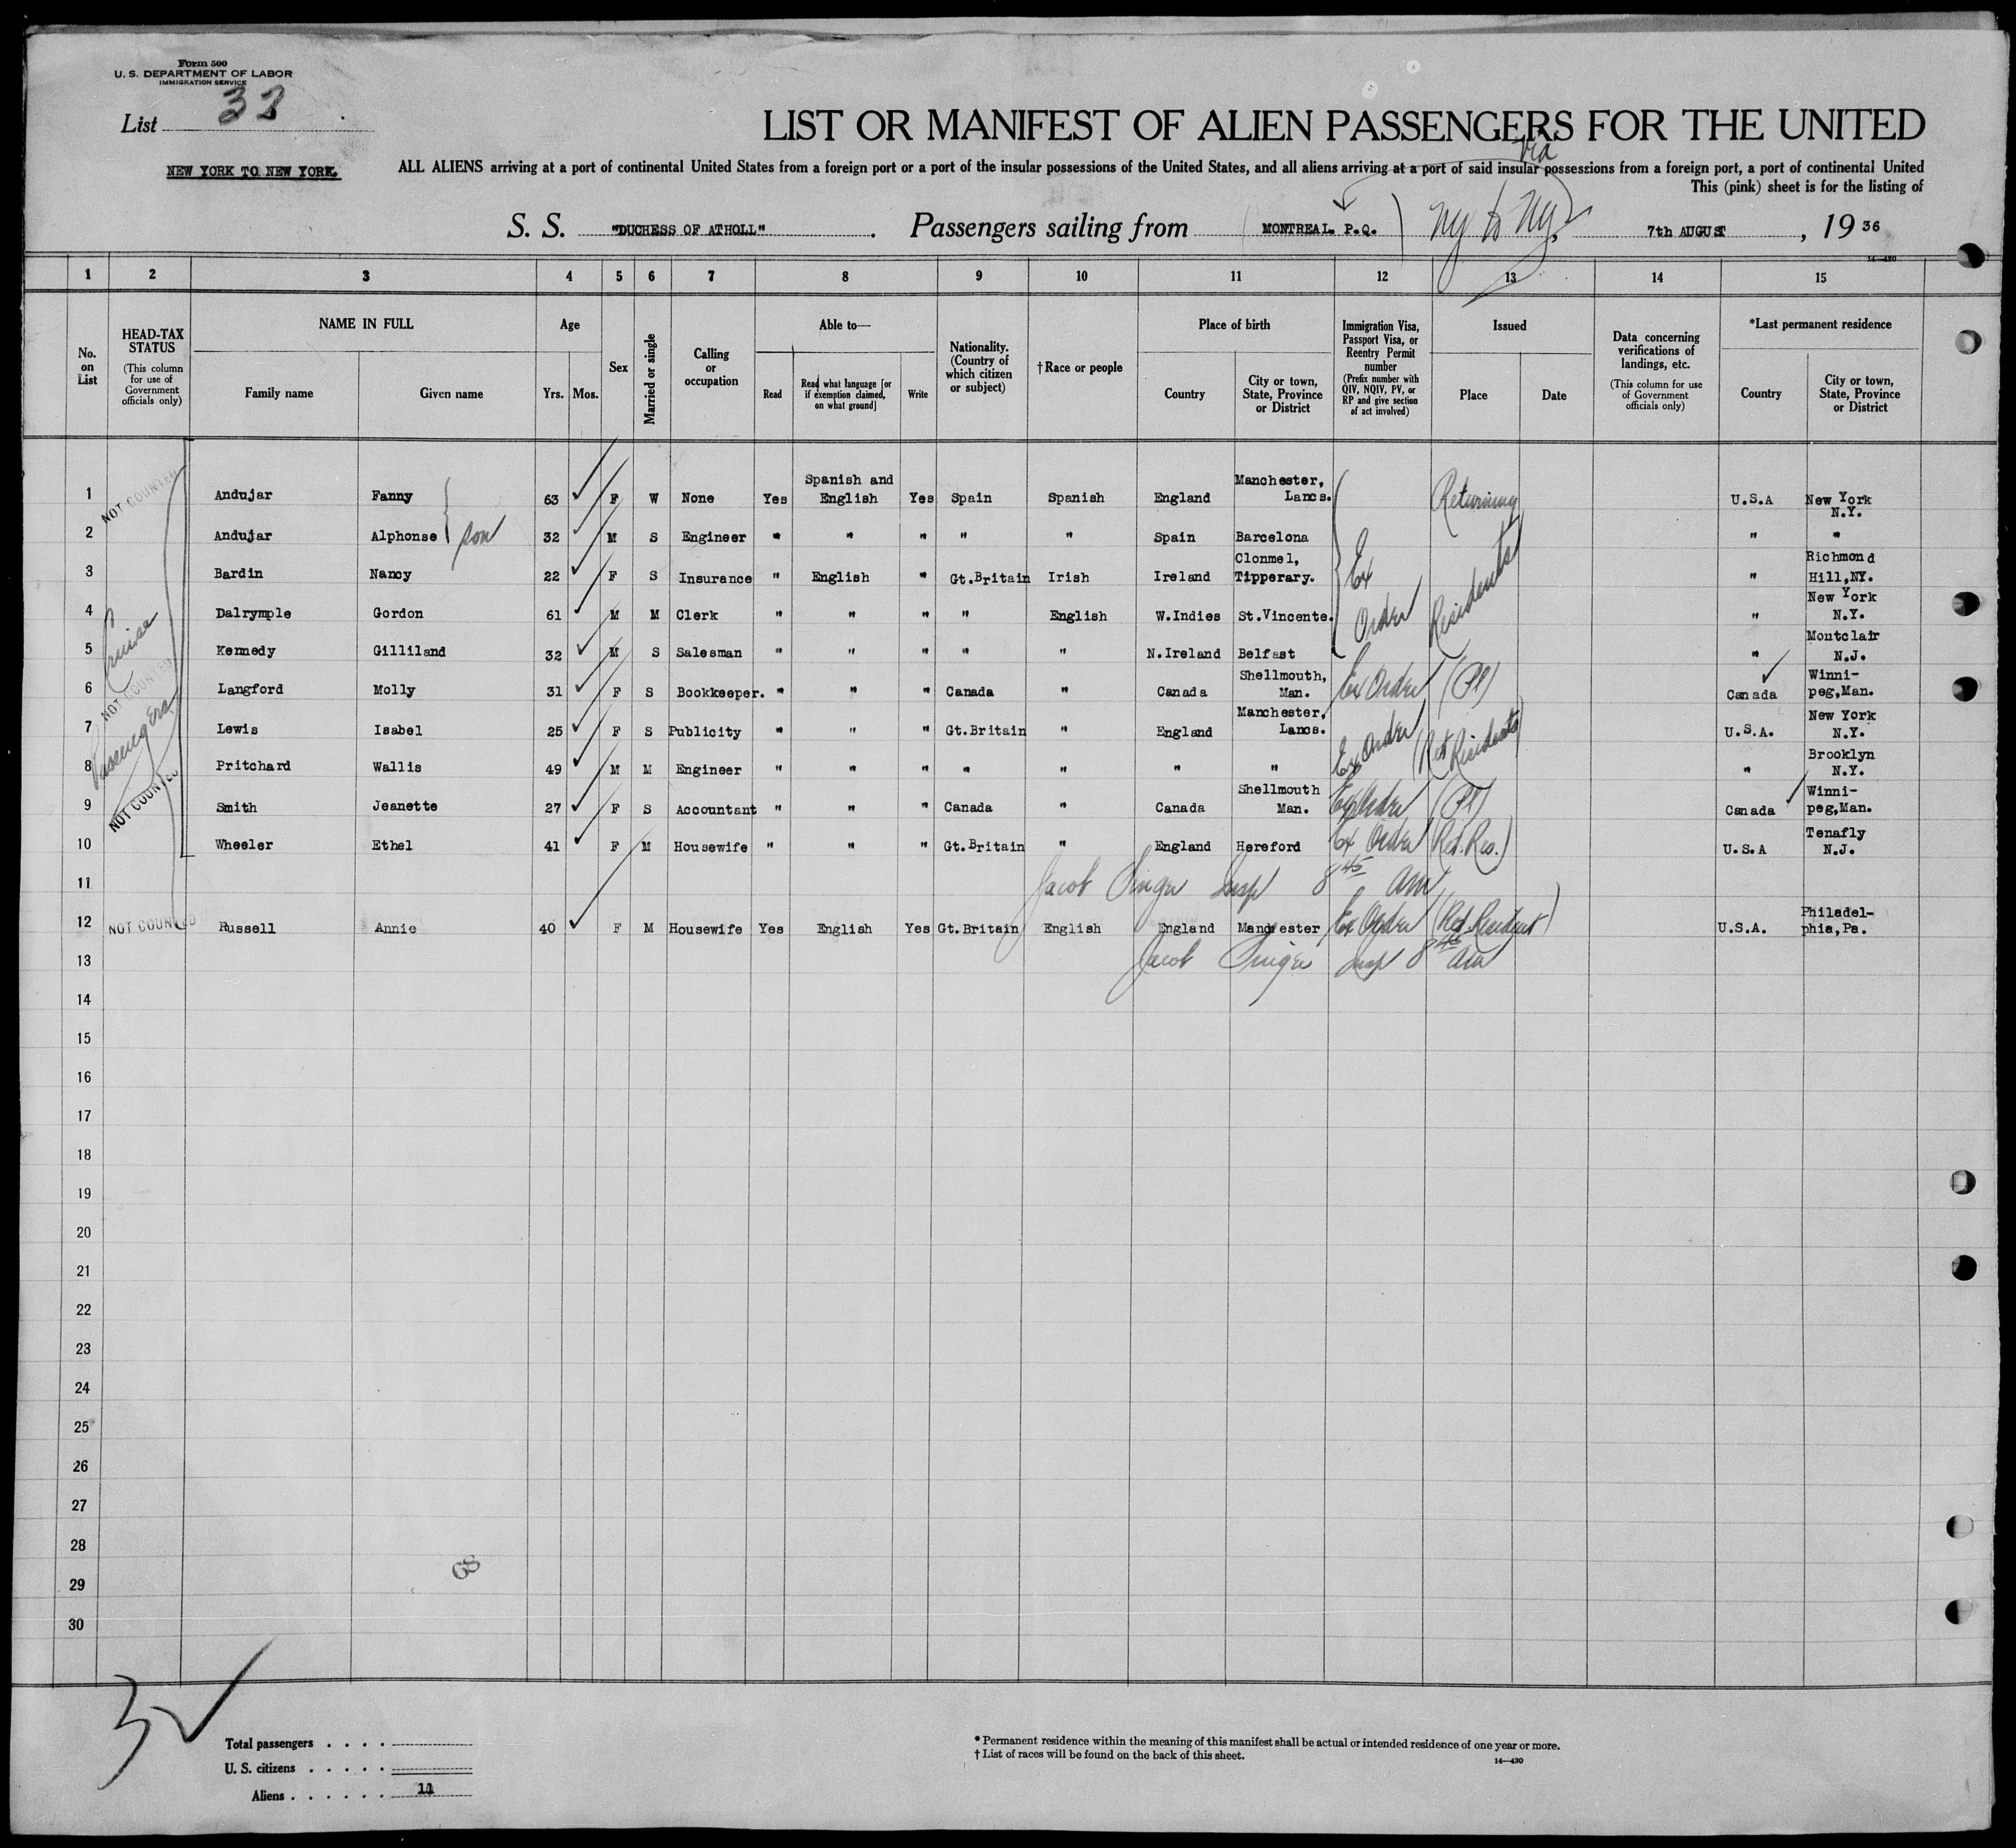 Form 500
U. S. DEPARTMENT OF LABOR
IMMIGRATION SERVICE
List 32
NEW YORK TO NEW YORK.
LIST OR MANIFEST OF ALIEN PASSENGERS FOR THE UNITED
via
ALL ALIENS arriving at a port of continental United States from a foreign port or a port of the insular possessions of the United States, and all aliens arriving at a port of said insular possessions from a foreign port, a port of continental United
This (pink) sheet is for the listing of
S. S. "DUCHESS OF ATHOLL". Passengers sailing from (MONTREAL. P.Q.) NY to NY, 7th AUGUST, 1936
14—430
1 2 3 4 5 6 7 8 9 10 11 12 13 14 15
No. on List
HEAD-TAX STATUS
(This column for use of Government officials only)
NAME IN FULL
Family name Given name
Age
Yrs. Mos.
Sex
Married or single
Calling or occupation
Able to—
Read
Read what language [or if exemption claimed, on what ground]
Write
Nationality. (Country of which citizen or subject)
†Race or people
Place of birth
Country
City or town, State, Province or District
Immigration Visa, Passport Visa, or Reentry Permit number
(Prefix number with QIV, NQIV, PV, or RP and give section of act involved)
Issued
Place Date
Data concerning verifications of landings, etc.
(This column for use of Government officials only)
*Last permanent residence
Country
City or town, State, Province or District
NOT COUNTED
Cruise
NOT COUNTED
Passengers
NOT COUNTED
1 Andujar Fanny 63 F W None Yes Spanish and English Yes Spain Spanish England Manchester, Lancs. Returning U.S.A New York N.Y.
2 Andujar Alphonse son 32 M S Engineer " " " " " Spain Barcelona " "
3 Bardin Nancy 22 F S Insurance " English " Gt.Britain Irish Ireland Clonmel, Tipperary. Ex Residents " Richmond Hill,NY.
4 Dalrymple Gordon 61 M M Clerk " " " " English W.Indies St.Vincente. Order " New York N.Y.
5 Kennedy Gilliland 32 M S Salesman " " " " " N.Ireland Belfast " Montclair N.J.
6 Langford Molly 31 F S Bookkeeper. " " " Canada " Canada Shellmouth, Man. Ex Order (Pl) Canada Winni-peg,Man.
7 Lewis Isabel 25 F S Publicity " " " Gt.Britain " England Manchester, Lancs. Ex Order (Ret Residents) U.S.A. New York N.Y.
8 Pritchard Wallis 49 M M Engineer " " " " " " " " Brooklyn N.Y.
9 Smith Jeanette 27 F S Accountant " " " Canada " Canada Shellmouth Man. Ex Order (Pl) Canada Winni-peg,Man.
10 Wheeler Ethel 41 F M Housewife " " " Gt.Britain " England Hereford Ex Order (Ret. Res.) U.S.A Tenafly N.J.
11 Jacob Singer Insp 8 45 am
12 NOT COUNTED Russell Annie 40 F M Housewife Yes English Yes Gt.Britain English England Manchester Ex Order (Ret. Resident) U.S.A. Philadel-phia,Pa.
13 Jacob Singer Insp 8 45 am
14
15
16
17
18
19
20
21
22
23
24
25
26
27
28
29
30
68
Total passengers . . . .
U. S. citizens . . . . .
Aliens . . . . . . 11
* Permanent residence within the meaning of this manifest shall be actual or intended residence of one year or more.
† List of races will be found on the back of this sheet.
14—430